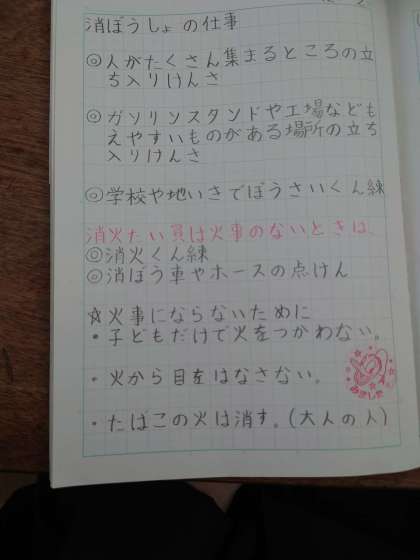 消ぼうしょの仕事
◎人がたくさん集まるところの立
ち入りけんさ
◎ガソリンスタンドや工場なども
えやすいものがある場所の立ち
入りけんさ
◎学校や地いきでぼうさいくん練
消火たい員は火事のないときは、
◎消火くん練
◎消ぼう車やホースの点けん
☆火事にならないために
・子どもだけで火をつかわない。
・火から目をはなさない。
みました
・たばこの火は消す。(大人の人)